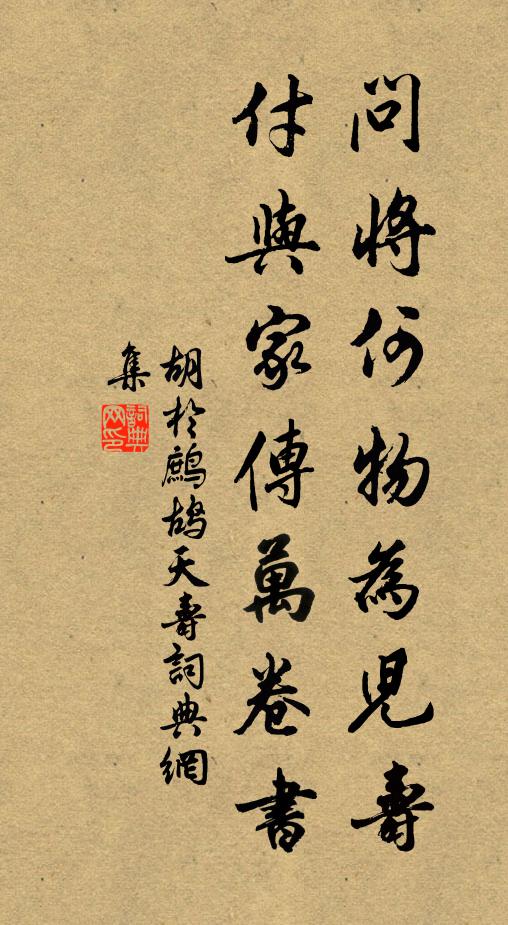 問將何物為児壽
付與家傳萬卷書
胡於鷓鴣天壽詞典網
集
詞典
网印